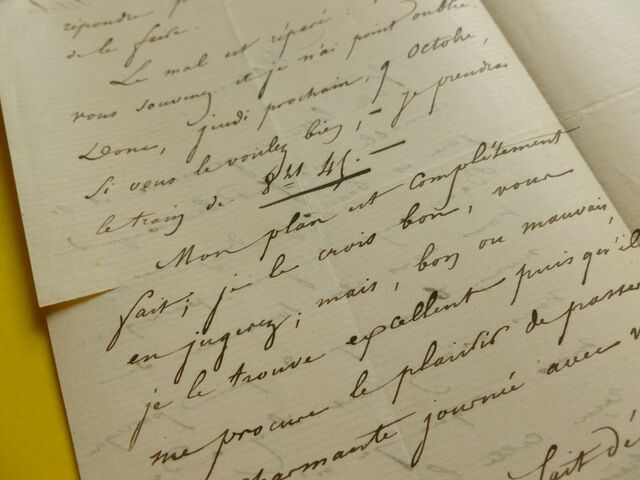 répondre
de le faire.
Le mal est réparé :
vous souvenez et je n'ai point oublié.
Donc, jeudi prochain, 9 Octobre,
Si vous le voulez bien, — je prendrai
le train de 8h 45. —
Mon plan est complètement
fait ; je le crois bon, vous
en jugerez ; mais, bon ou mauvais,
je le trouve excellent puisqu'il
me procure le plaisir de passer
charmante journée avec
fait